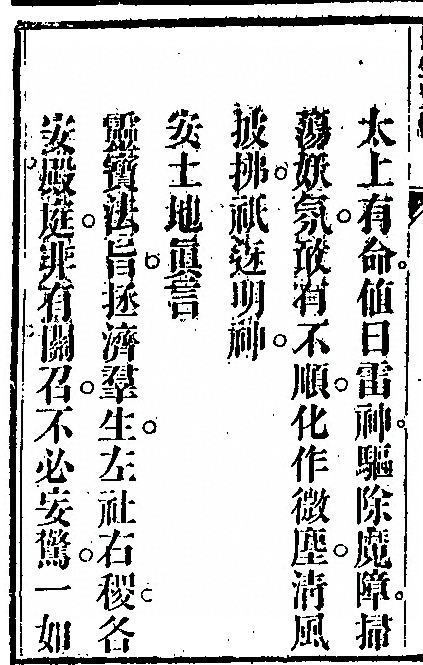 太上有命。值日雷神。驅除魔障。掃
蕩妖氛。敢有不順。化作微塵。清風
披拂。祇迓明神。
安土地眞言
靈寶法旨。拯濟羣生。左社右稷。各
安殿庭。非有關召。不必妄驚。一如